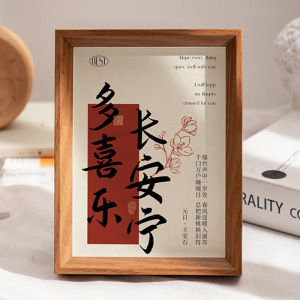 BEST
Hope every thing
goes well with you
I will keep
my fingers
crossed for you
多喜乐
长安宁
爆竹声中一岁除
春风送暖入屠苏
千门万户曈曈日
总把新桃换旧符
元日·王安石
MORALITY